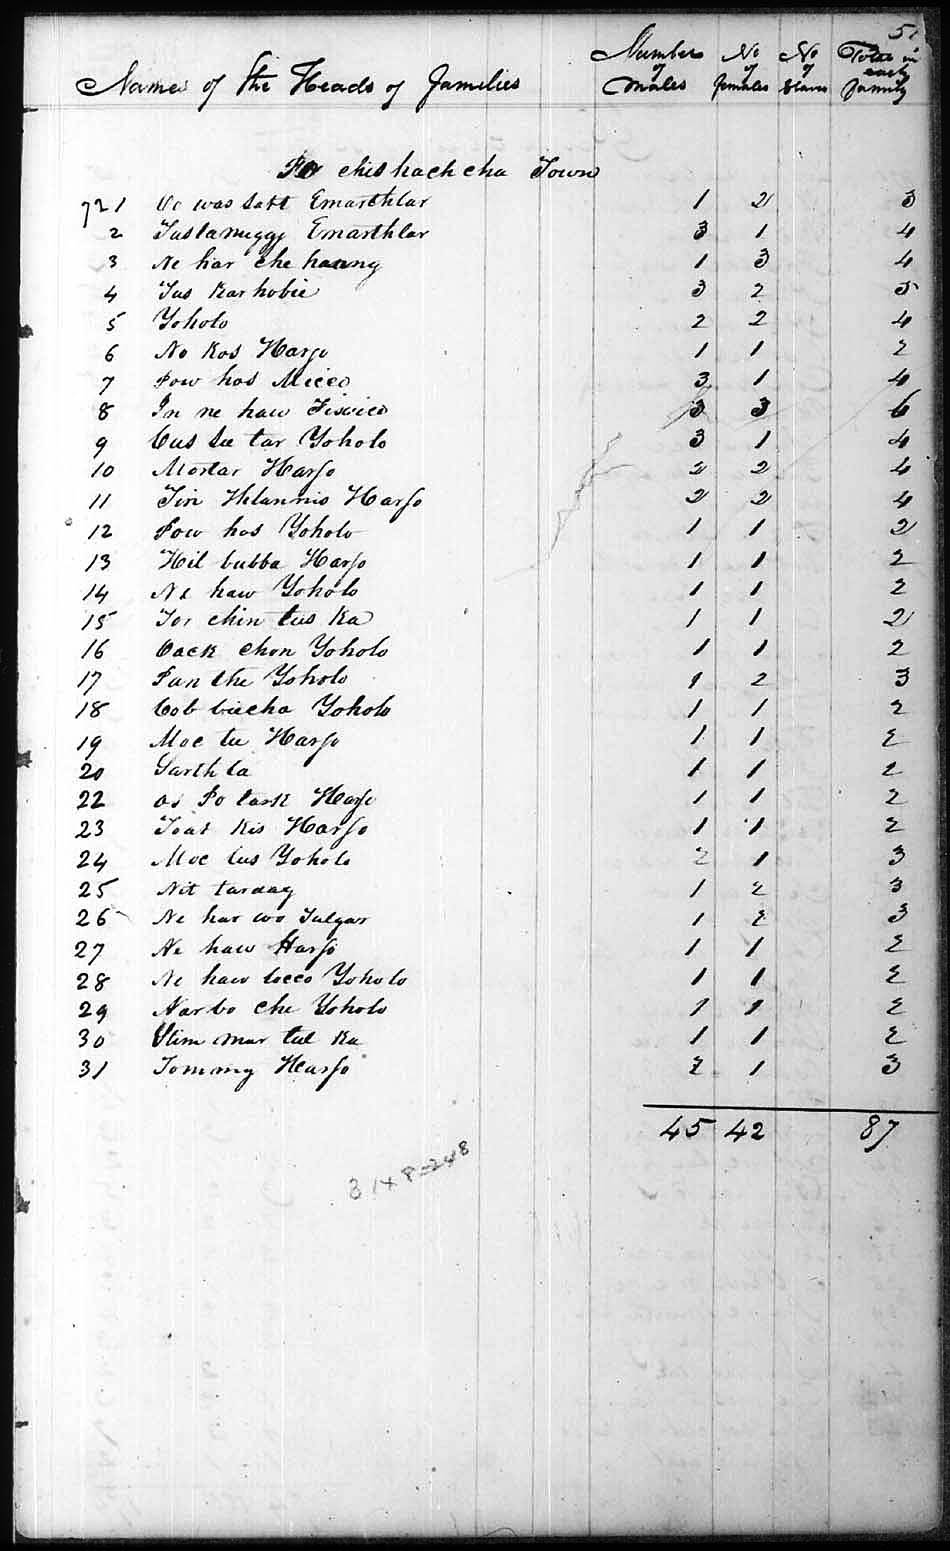 51
Names of the Heads of Families Number of Males No of females No of Slaves Total in each family
Po chis hach cha Town
721 Oc was satt Emarthlar 1 2 3
2 Tustanuggy Emarthlar 3 1 4
3 Ne har che haung 1 3 4
4 Tus Kar hobie 3 2 5
5 Yoholo 2 2 4
6 No Kos Harjo 1 1 2
7 Pow hos Micco 3 1 4
8 In ne haw Fixico 3 3 6
9 Cus se tar Yoholo 3 1 4
10 Mortar Harjo 2 2 4
11 Tin Thlannis Harjo 2 2 4
12 Pow hos Yoholo 1 1 2
13 Hil bubba Harjo 1 1 2
14 Ne haw Yoholo 1 1 2
15 Tor chin tus Ka 1 1 2
16 Cack chon Yoholo 1 1 2
17 Pan the Yoholo 1 2 3
18 Cob biccha Yoholo 1 1 2
19 Moc tee Harjo 1 1 2
20 Sarth la 1 1 2
22 os Po tark Harjo 1 1 2
23 Toat Kis Harjo 1 1 2
24 Moc tus Yoholo 2 1 3
25 Nit tarday 1 2 3
26 Ne har wo Tulgar 1 2 3
27 Ne haw Harjo 1 1 2
28 Ne haw locco Yoholo 1 1 2
29 Narbo che Yoholo 1 1 2
30 Slim mar tul Ka 1 1 2
31 Tommy Harjo 2 1 3
45 42 87
31x8=248